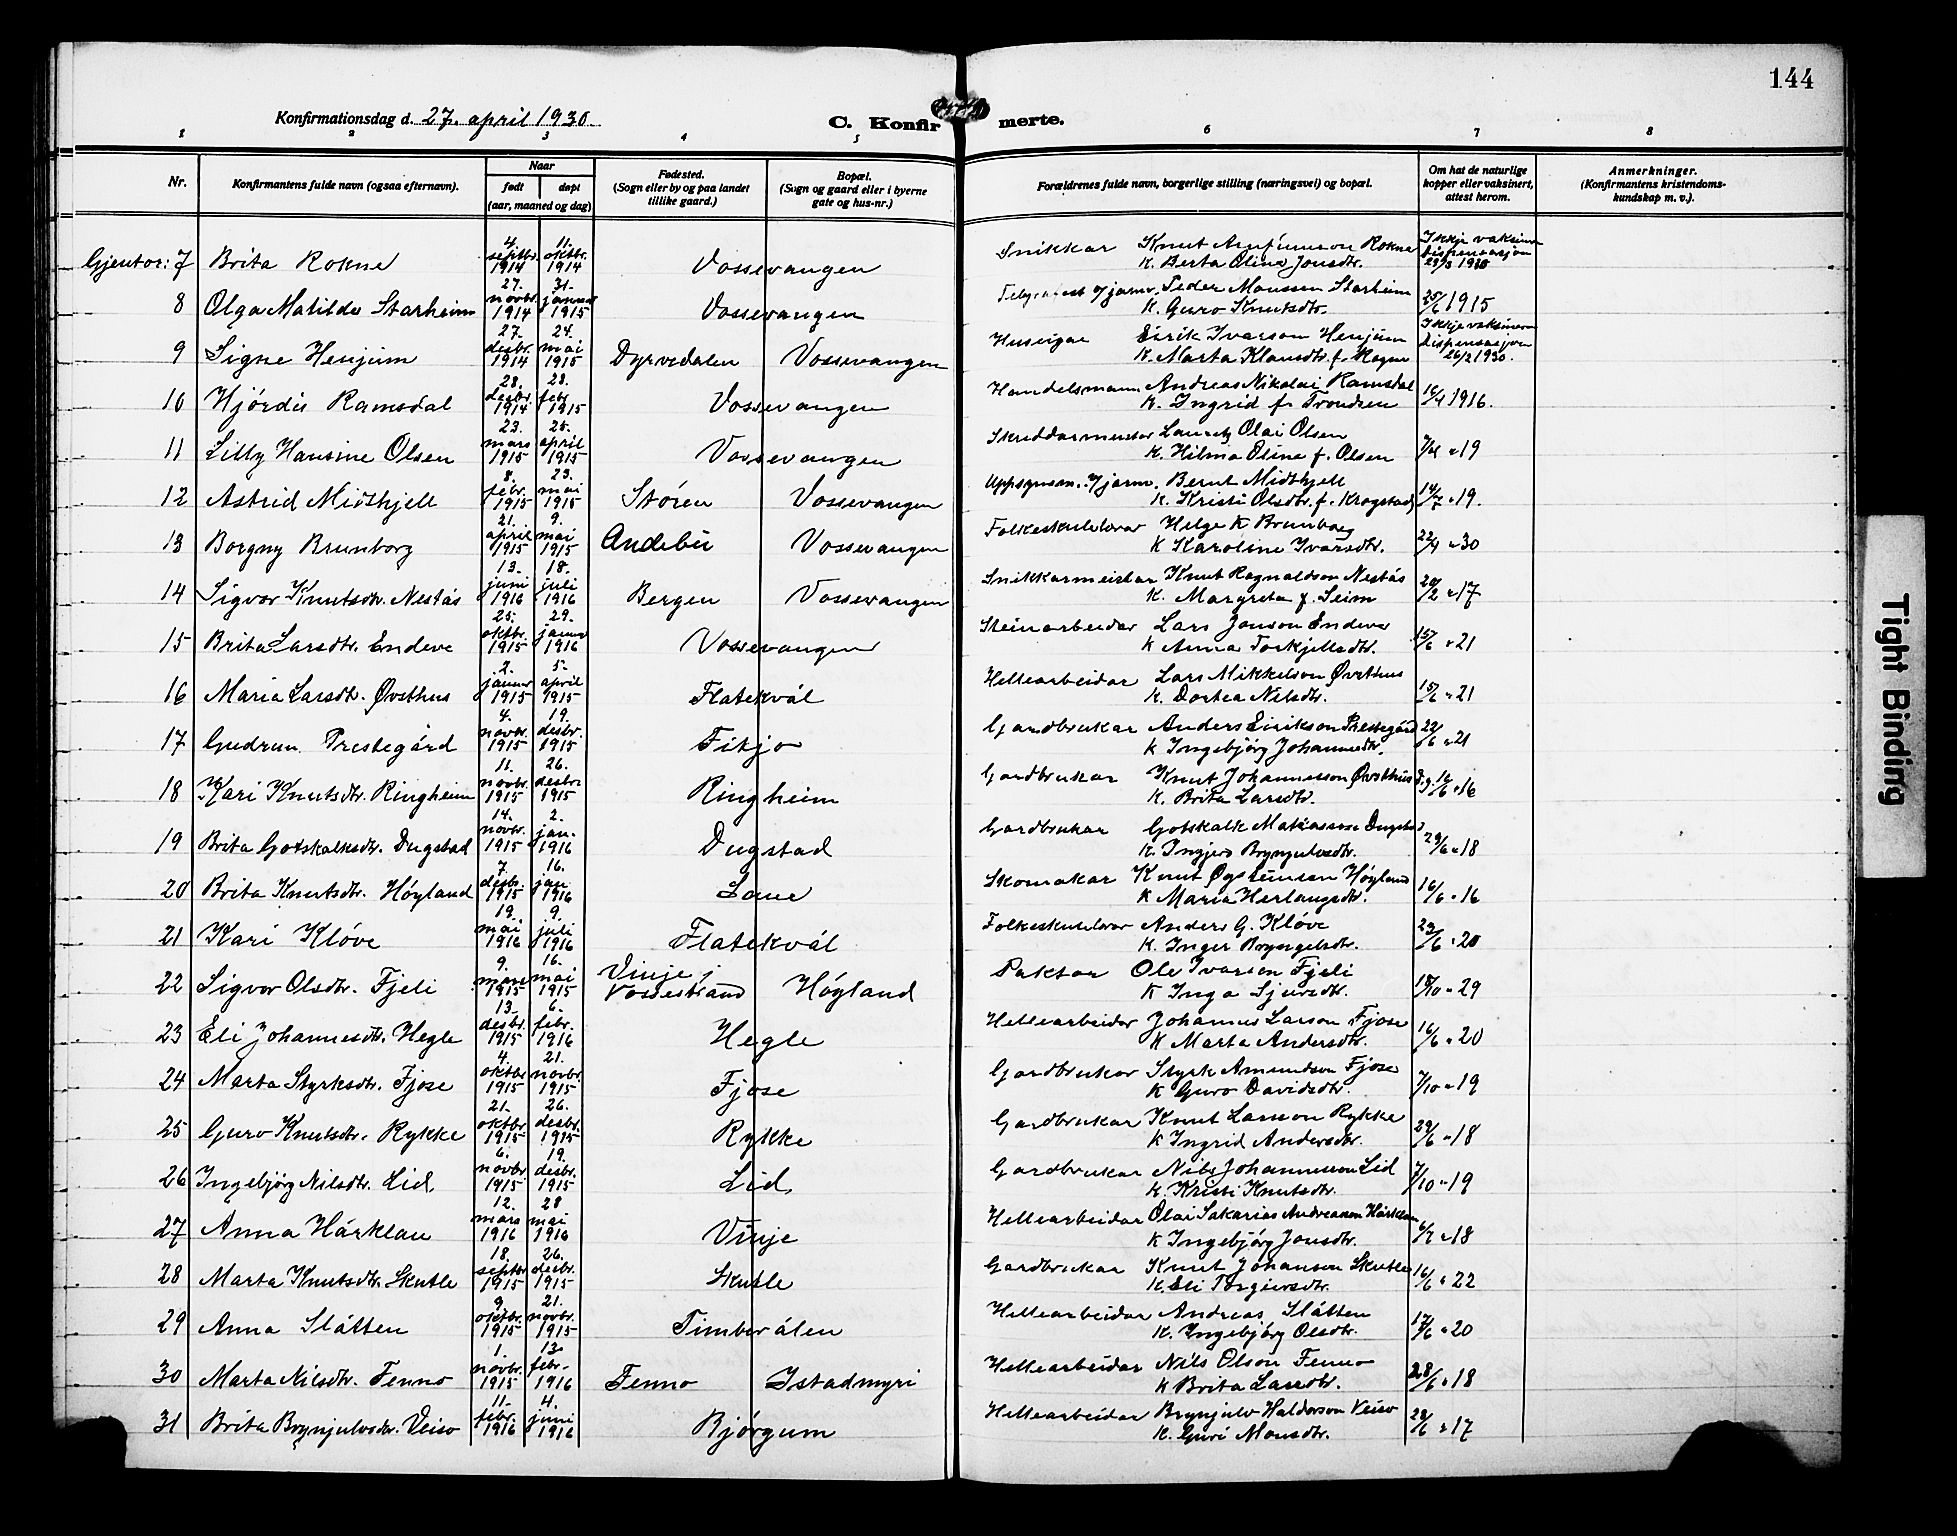 144
Konfirmationsdag d. 27. april 1930.
C. Konfirmerte.
1 2 3 4 5 6 7 8
Nr.
Konfirmantens fulde navn (ogsaa efternavn).
Naar
født døpt
(aar, maaned og dag)
Fødested.
(Sogn eller by og paa landet
tillike gaard.)
Bopæl.
(Sogn og gaard eller i byerne
gate og hus-nr.)
Forældrenes fulde navn, borgerlige stilling (næringsvei) og bopæl.
Om hat de naturlige
kopper eller vaksinert,
attest herom.
Anmerkninger.
(Konfirmantens kristendoms-
kundskap m. v.).
Gjentor: 7 Brita Rokne 4. septbr. 1914 11. oktbr. 1914 Vossevangen Snikkar Knut Arnfinnson Rokne K. Berta Olina Jonsdtr. Ikkje vaksinert Dispensasjon 1930
8 Olga Matilde Starheim 27. novbr. 1914 31. januar 1915 Vossevangen Peder Monssen Starheim K. Guro Knutsdtr. 25/6 1915
9 Signe Henjum 27. desbr. 1914 24. mai 1915 Dyrvedalen Vossevangen Huseigar Eirik Ivarson Henjum K. Marta Klausdtr. f. Ikkje vaksinert Dispensasjon 26/2 1930.
10 Hjördis Ramsdal 28. desbr. 1914 28. febr. 1915 Vossevangen Handelsmann Andreas Nikolai Ramsdal K. Ingrid f. Trondsen 16/4 1916.
11 Lilly Hansine Olsen 23. mars 1915 25. april 1915 Vossevangen Skreddarmeister Lauritz Olai Olsen K. Hilma Oline f. Olsen 7/4 " 19
12 Astrid Midthjell 8. febr. 1915 23. mai 1915 Støren Vossevangen Uppsynsm. v/jarnv. Bernt Midthjell K. Kristi Olsdtr. f. Krogstad 14/7 " 19.
13 Borgny Brunborg 21. april 1915 9. mai 1915 Andebu Vossevangen Folkeskulelærar Helge K Brunborg K Karoline Ivarsdtr. 22/4 " 30
14 Sigvor Knutsdtr. Nestås 13. juni 1916 18. juli 1916 Bergen Vossevangen Snikkarmeistar Knut Ragnaldson Nestås K. Margreta f. Seim 20/2 " 17
15 Brita Larsdtr. Endeve 25. oktbr. 1915 29. januar 1916 Vossevangen Steinarbeidar Lars Jonson Endeve K Anna Torkjellsdtr. 15/6 " 21
16 Maria Larsdtr. Øvsthus 2. januar 1915 5. april 1915 Flatekvål Hellearbeidar Lars Mikkelson Øvsthus K. Dortea Nilsdtr. 15/6 " 21
17 Gudrun Prestegård 4. novbr. 1915 19. desbr. 1915 Fitjo Gardbrukar Anders Eirikson Prestegård K Ingebjörg Johannesdtr. 22/6 " 21
18 Kari Knutsdtr. Ringheim 11. novbr. 1915 26. desbr. 1915 Ringheim Gardbrukar Knut Johannesson Øvsthus K. Brita Larsdtr. 16
19 Brita Gotskalksdtr. Dugstad 14. novbr. 1915 2. jan. 1916 Dugstad Gardbrukar Gotskalk Matiasson Dugstad K. Ingjerd Brynjulvsdtr. 29/6 " 18
20 Brita Knutsdtr. Höyland 7. desbr. 1915 16. jan. 1916 Lone Skomakar Knut Øysteinson Höyland K Maria Herlaugsdtr. 16/6 " 16
21 Kari Klöve 19. mai 1916 9. juli 1916 Flatekvål Folkeskulelærar Anders G. Klöve K. Inger Bryngelsdtr. 23/6 " 20
22 Sigvor Olsdtr. Fjeli 9. mars 1915 16. mai 1915 Vinje i Vossestrand Höyland Paktar Ole Ivarson Fjeli K Inga Sjursdtr. 18/10 " 29
23 Eli Johannesdtr. Hegle 13. desbr. 1915 6. febr. 1916 Hegle Hellearbeidar Johannes Larson Fjose K Marta Andersdtr. 16/6 " 20
24 Marta Styrksdtr. Fjose 4. oktbr 1915 21. novbr. 1915 Fjose Gardbrukar Styrk Amundson Fjose K Guro Davidsdtr. 7/10 " 19
25 Guro Knutsdtr. Rykke 21. oktbr 1915 26. desbr. 1915 Rykke Gardbrukar Knut Larsson Rykke K Ingrid Andersdtr. 29/6 " 18
26 Ingebjörg Nilsdtr. Lid. 6. novbr 1915 19. desbr. 1915 Lid. Gardbrukar Nils Johannesson Lid K. Kristi Knutsdtr. 7/10 " 19
27 Anna Hårklau 12. mars 1916 28 mai 1916 Vinje Hellearbeidar Olai Sakarias Andreasson Hårklau K Ingebjörg Jonsdtr. 6/7 " 18
28 Marta Knutsdtr. Skutle 18. septbr 1915 26. desbr. 1915 Skutle Gardbrukar Knut Johanson Skutle K. Eli Torgiersdtr. 16/6 " 22
29 Anna Slåtten 9. oktbr. 1915 21. novbr. 1915 Timbervålen Hellearbeidar Andreas Slåtten K. Ingebjörg Olsdtr. 17/6 " 20
30 Marta Nilsdtr. Fenno 1. novbr. 1915 13. febr. 1916 Fenno Istadmyri Hellearbeidar Nils Olson Fenno K Brita Larsdtr. 28/6 " 18
31 Brita Brynjulvsdtr. Veiso 11. febr. 1916 4. juni 1916 Bjørgum Hellearbeidar Brynjulv Haldorson Veiso K. Guri Monsdtr. 28/6 " 17
Tight Binding